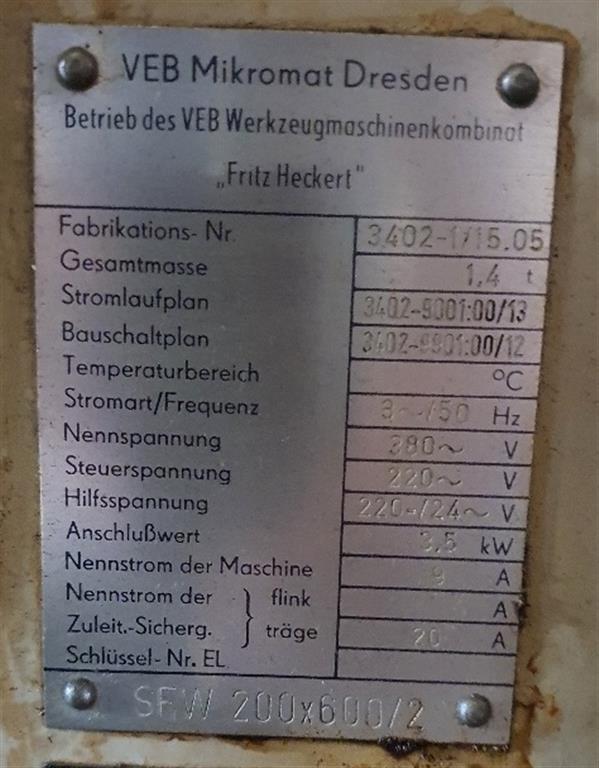 VEB Mikromat Dresden
Betrieb des VEB Werkzeugmaschinenkombinat
„Fritz Heckert"
Fabrikations-Nr. 3402-1/15.05
Gesamtmasse 1,4 t
Stromlaufplan 3402-9001:00/13
Bauschaltplan 3402-9901:00/12
Temperaturbereich °C
Stromart/Frequenz 3~/50 Hz
Nennspannung 380~ V
Steuerspannung 220~ V
Hilfsspannung 220~/24~ V
Anschlußwert 3,5 kW
Nennstrom der Maschine 9 A
Nennstrom der } flink A
Zuleit.-Sicherg. } träge 20 A
Schlüssel-Nr. EL
SFW 200x600/2